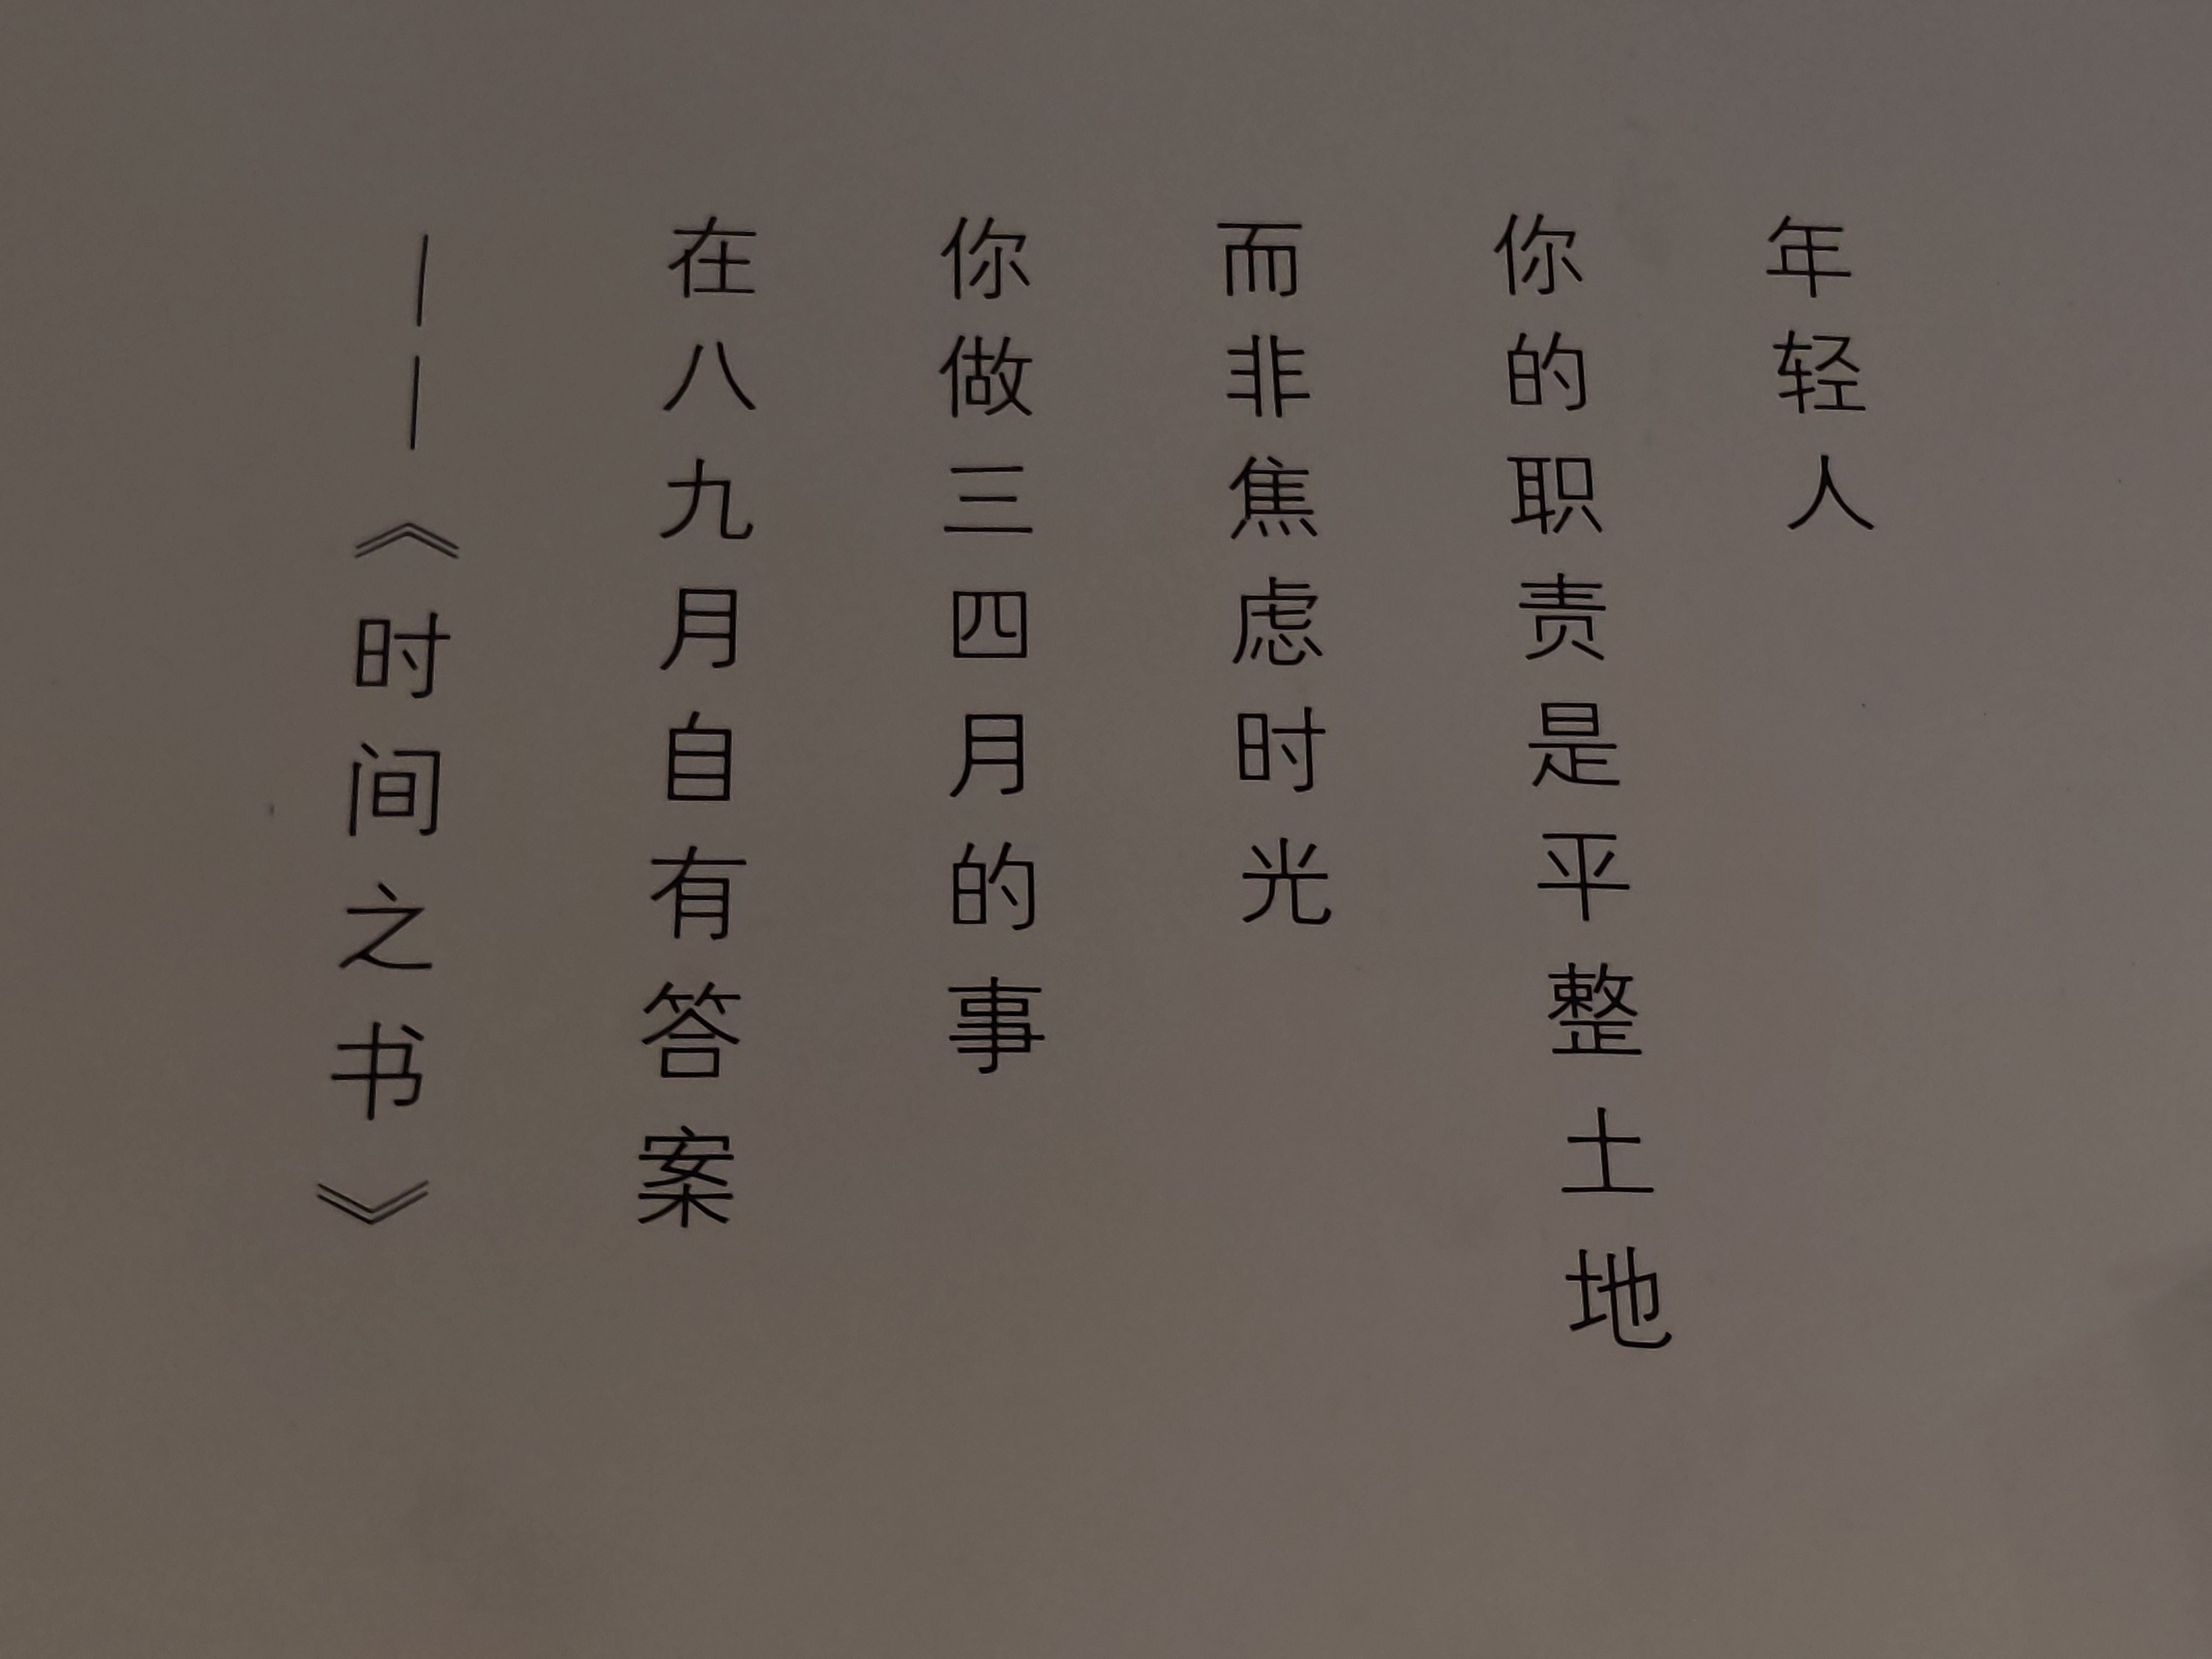 年轻人
你的职责是平整土地
而非焦虑时光
你做三四月的事
在八九月自有答案
——《时间之书》